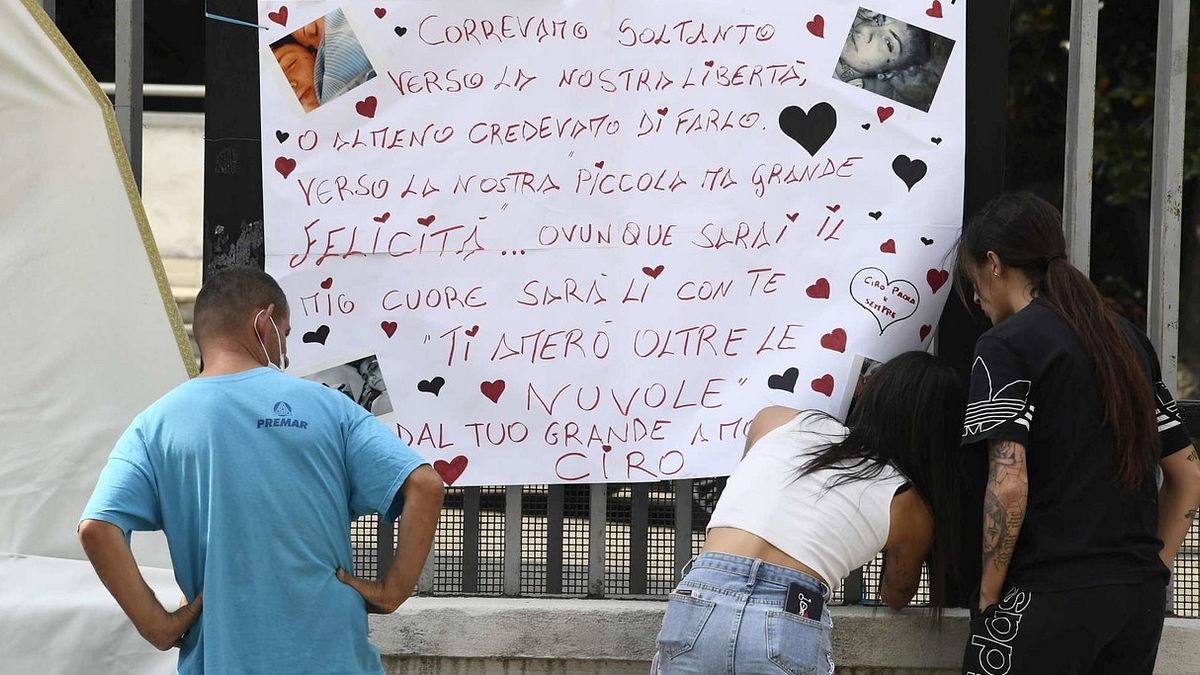 CORREVAMO SOLTANTO
VERSO LA NOSTRA LIBERTÀ,
O ALMENO CREDEVAMO DI FARLO.
VERSO LA NOSTRA "PICCOLA MA GRANDE
FELICITÀ" ... OVUNQUE SARAI IL
MIO CUORE SARÀ LÌ CON TE
"TI AMERÒ OLTRE LE
NUVOLE"
DAL TUO GRANDE AMO
CIRO
CIRO PAOLA
X
SEMPRE
PREMAR
adidas